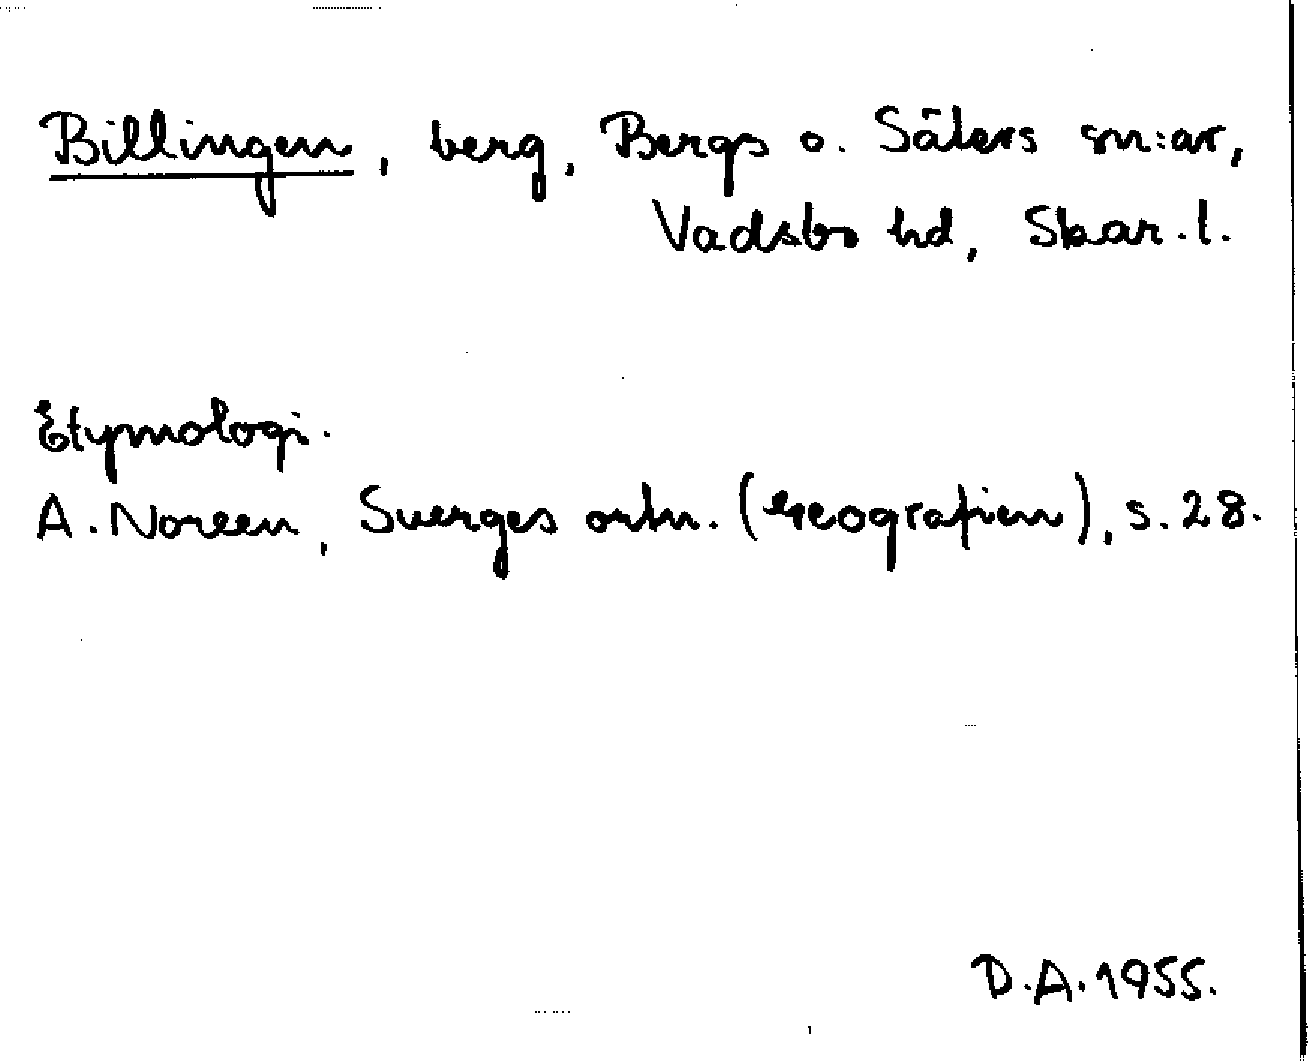 Billingen, berg, Bergs o. Sälers sn:ar,
Vadsbo hd, Skar. l.
Etymologi.
A. Noreen, Sverges ortn. (Geografien), s. 28.
D.A. 1955.